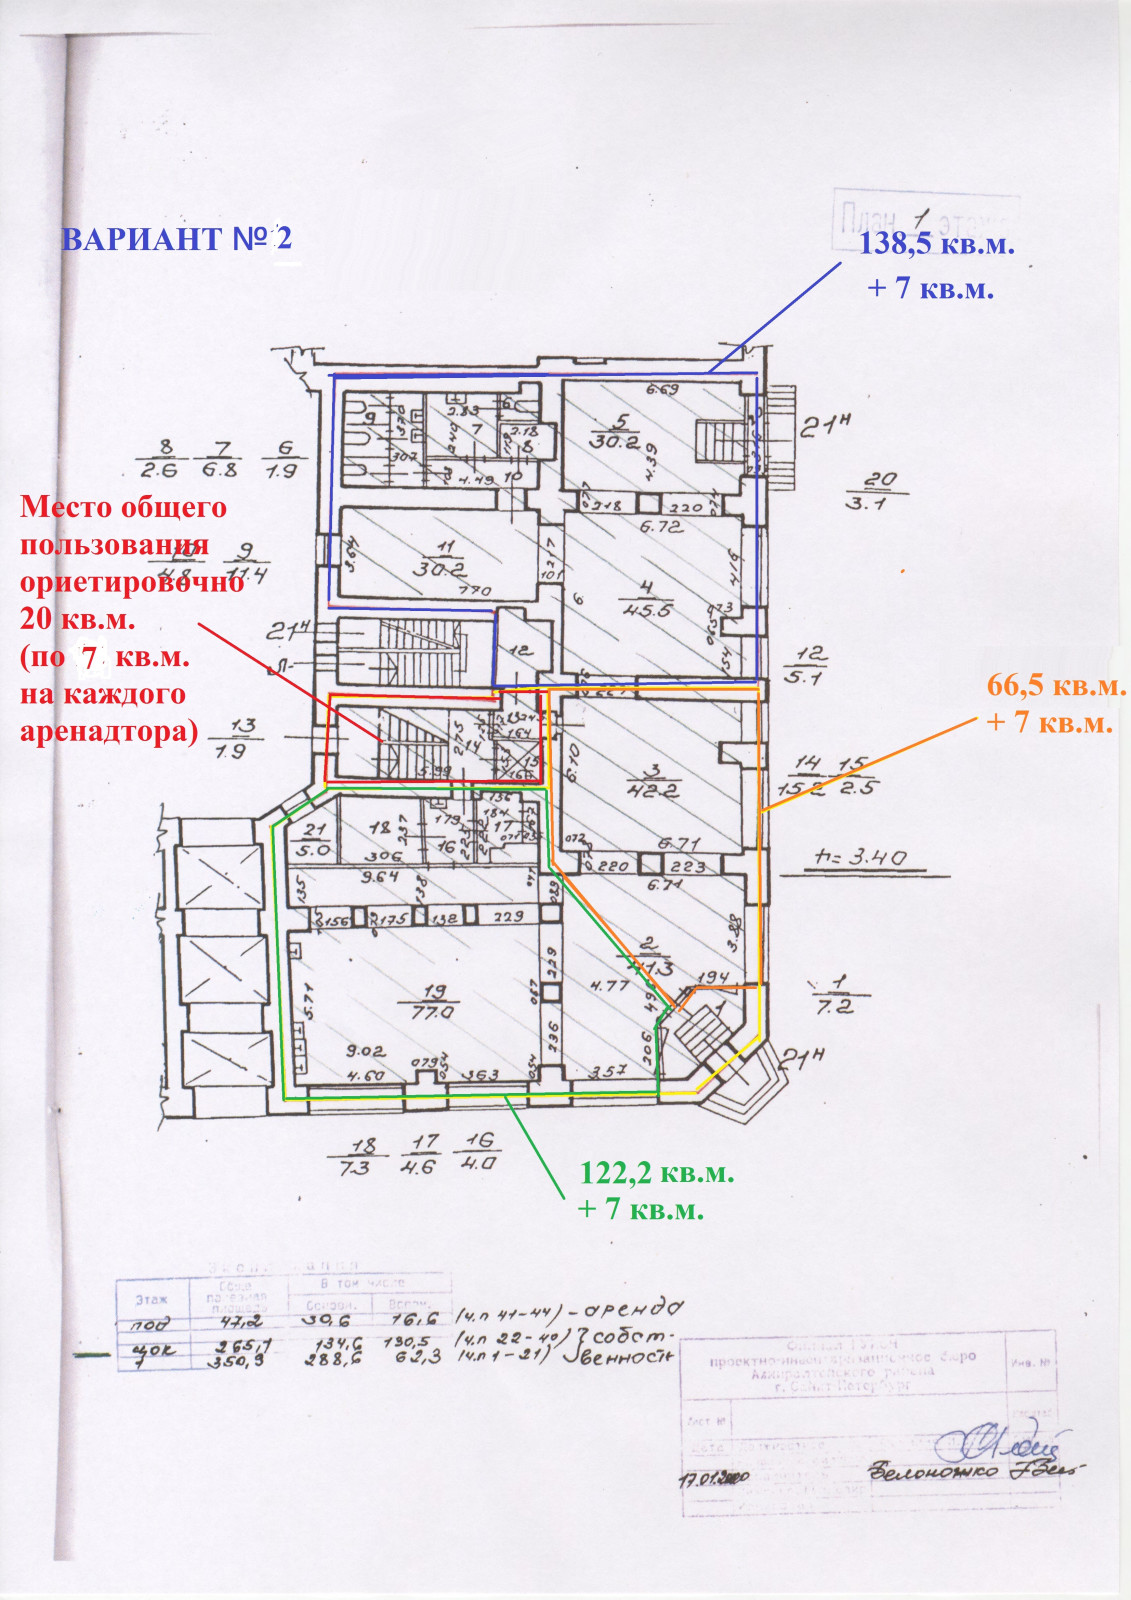 План 1 этажа
ВАРИАНТ № 2
138,5 кв.м.
+ 7 кв.м.
6.69
5
30.2
4.39
21н
9
2.83
7
6
2.18
8
307
4.49
10
218
220
6.72
8
2.6
7
6.8
6
1.9
20
3.1
Место общего
пользования
ориетировочно
20 кв.м.
(по 7 кв.м.
на каждого
аренадтора)
10
4.8
9
11.4
3.64
11
30.2
770
217
101
6
4
45.5
4.16
073
065
154
21н
Л
12
12
5.1
66,5 кв.м.
+ 7 кв.м.
13
1.9
275
14
164
15
6.10
3
42.2
14
15.2
15
2.5
6.71
h = 3.40
21
5.0
18
237
306
179
16
17
220
223
6.71
9.64
135
138
156
175
132
229
3.88
2
194
4.77
229
067
236
5.71
19
77.0
9.02
079
4.60
363
3.57
206
1
1
7.2
21н
18
7.3
17
4.6
16
4.0
122,2 кв.м.
+ 7 кв.м.
Этаж
В том числе
Основн.
Вспом.
под 47,2 30,6 16,6 (ч.п 41-44) - аренда
цок 265,1 134,6 130,5 (ч.п 22-40) } собст-
1 350,9 288,6 62,3 (ч.п 1-21) венность
проектно-инвентаризационное бюро
Адмиралтейского района
г. Санкт-Петербург
Инв. №
Лист №
Дата
Белоножко